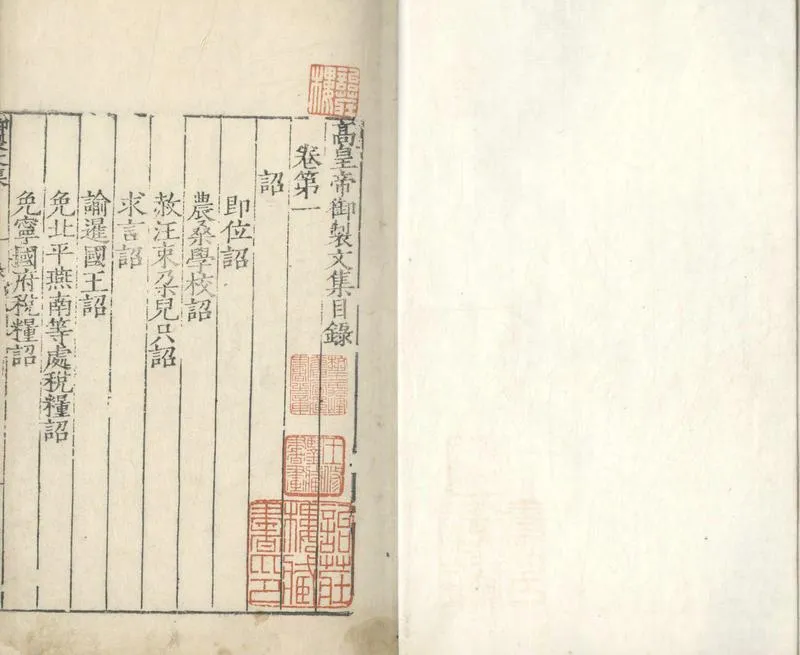 高皇帝御製文集目錄
卷第一
詔
即位詔
農桑學校詔
赦汪束朶兒只詔
求言詔
諭暹國王詔
免北平燕南等處稅糧詔
免寧國府稅糧詔